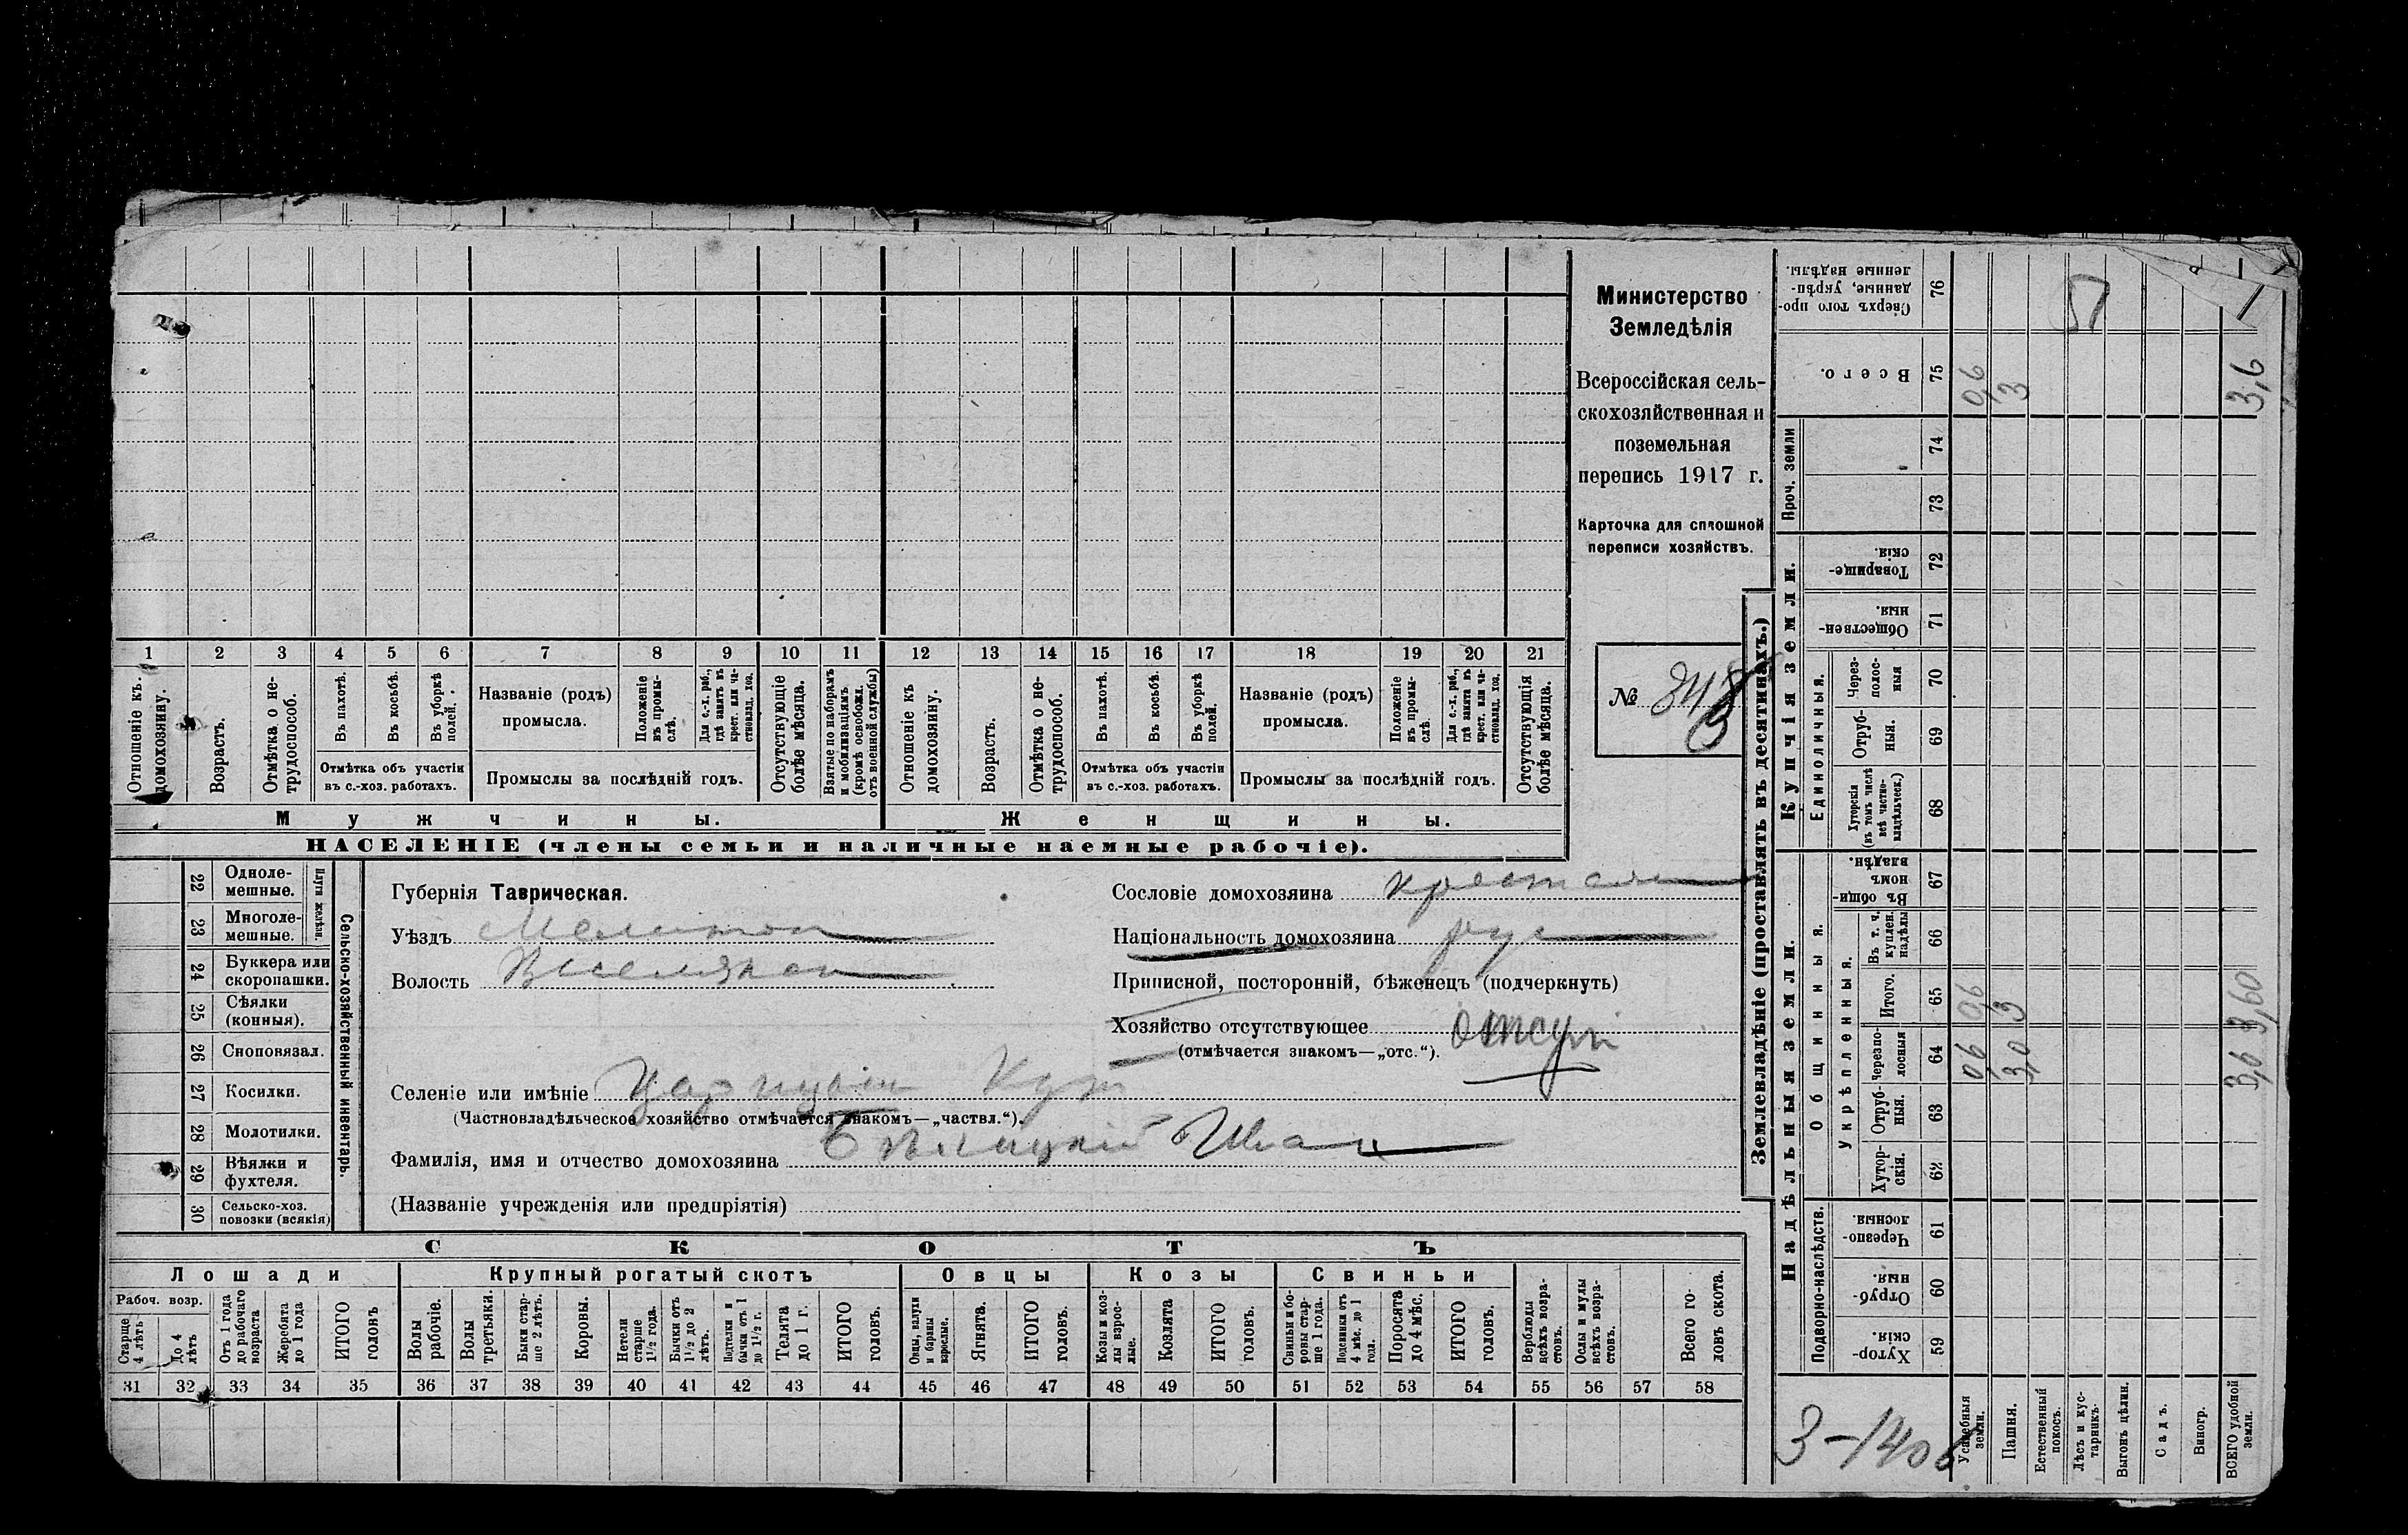 Министерство
Земледѣлія
Всероссійская сель-
скохозяйственная и
поземельная
перепись 1917 г.
Карточка для сплошной
переписи хозяйствъ.
№ 348
1 2 3 4 5 6 7 8 9 10 11 12 13 14 15 16 17 18 19 20 21
Отношеніе къ домохозяину.
Возрастъ.
Отмѣтка о не-трудоспособ.
Въ пахотѣ.
Въ косьбѣ.
Въ уборкѣ полей.
Отмѣтка объ участіи
въ с.-хоз. работахъ.
Названіе (родъ)
промысла.
Положеніе въ промы-слѣ.
Для с.-х. раб., гдѣ занятъ въ крест. или ча-стновлад. хоз.
Промыслы за послѣдній годъ.
Отсутствующіе болѣе мѣсяца.
Взятые по наборамъ и мобилизаціямъ (кромѣ освобожд. отъ военной службы)
Отношеніе къ домохозяину.
Возрастъ.
Отмѣтка о не-трудоспособ.
Въ пахотѣ.
Въ косьбѣ.
Въ уборкѣ полей.
Отмѣтка объ участіи
въ с.-хоз. работахъ.
Названіе (родъ)
промысла.
Положеніе въ промы-слѣ.
Для с.-х. раб., гдѣ занята въ крест. или ча-стновлад. хоз.
Промыслы за послѣдній годъ.
Отсутствующія болѣе мѣсяца.
Мужчины. Женщины.
НАСЕЛЕНІЕ (члены семьи и наличные наемные рабочіе).
22 Одноле-
мешные.
23 Многоле-
мешные.
Плуги желѣзн.
24 Буккера или
скоропашки.
25 Сѣялки
(конныя).
26 Сноповязал.
27 Косилки.
28 Молотилки.
29 Вѣялки и
фухтеля.
30 Сельско-хоз.
повозки (всякія)
Сельско-хозяйственный инвентарь.
Губернія Таврическая.
Уѣздъ Мелитоп
Волость Веселянская
Селеніе или имѣніе Царицын Кут
(Частновладѣльческое хозяйство отмѣчается знакомъ—„частвл.“).
Фамилія, имя и отчество домохозяина Бѣлицкій Иван
(Названіе учрежденія или предпріятія)
Сословіе домохозяина крестьян
Національность домохозяина рус
Приписной, посторонній, бѣженецъ (подчеркнуть)
Хозяйство отсутствующее отсут
(отмѣчается знакомъ—„отс.“).
СКОТЪ
Лошади Крупный рогатый скотъ Овцы Козы Свиньи
Рабоч. возр.
Старше 4 лѣтъ
До 4 лѣтъ
Отъ 1 года до рабочаго возраста
Жеребята до 1 года
ИТОГО головъ
Волы рабочіе.
Волы третьяки.
Быки стар-ше 2 лѣтъ.
Коровы.
Нетели старше 1½ года.
Бычки отъ 1½ до 2 лѣтъ.
Подтелки и бычки отъ 1 до 1½ г.
Телята до 1 г.
ИТОГО головъ.
Овцы, валухи и бараны взрослые.
Ягнята.
ИТОГО головъ.
Козы и коз-лы взрос-лые.
Козлята
ИТОГО головъ.
Свиньи и бо-ровы стар-ше 1 года.
Подсвинки отъ 4 мѣс. до 1 года.
Поросята до 4 мѣс.
ИТОГО головъ.
Верблюды всѣхъ возра-стовъ.
Ослы и мулы всѣхъ возра-стовъ.
Всего го-ловъ скота.
31 32 33 34 35 36 37 38 39 40 41 42 43 44 45 46 47 48 49 50 51 52 53 54 55 56 57 58
Землевладѣніе (проставлять въ десятинахъ.)
Надѣльныя земли. Купчія земли.
Подворно-наслѣдств.
Общинныя.
Укрѣпленныя.
Единоличныя.
Проч. земли
Хутор-скія. 59
Отруб-ныя. 60
Черезпо-лосныя. 61
Хутор-скія. 62
Отруб-ныя. 63
Черезпо-лосныя 64
Итого. 65
Въ т. ч. куплен. надѣлы 66
Въ общин-номъ владѣн. 67
Хуторскія (въ томъ числѣ всѣ частно-владѣльческ.) 68
Отруб-ныя. 69
Через-полос-ныя 70
Обществен-ныя. 71
Товарище-скія. 72
73
74
Всего. 75
Сверхъ того про-данные, укрѣп-ленные надѣлы. 76
Усадебныя земли. 0,6 0,6 0,6
Пашня. 3,0 3 3
Естественный покосъ.
Лѣсъ и кус-тарникъ.
Выгонъ цѣлин.
Садъ.
Виногр.
ВСЕГО удобной земли. 3,6 3,60 3,6
51
3-1406